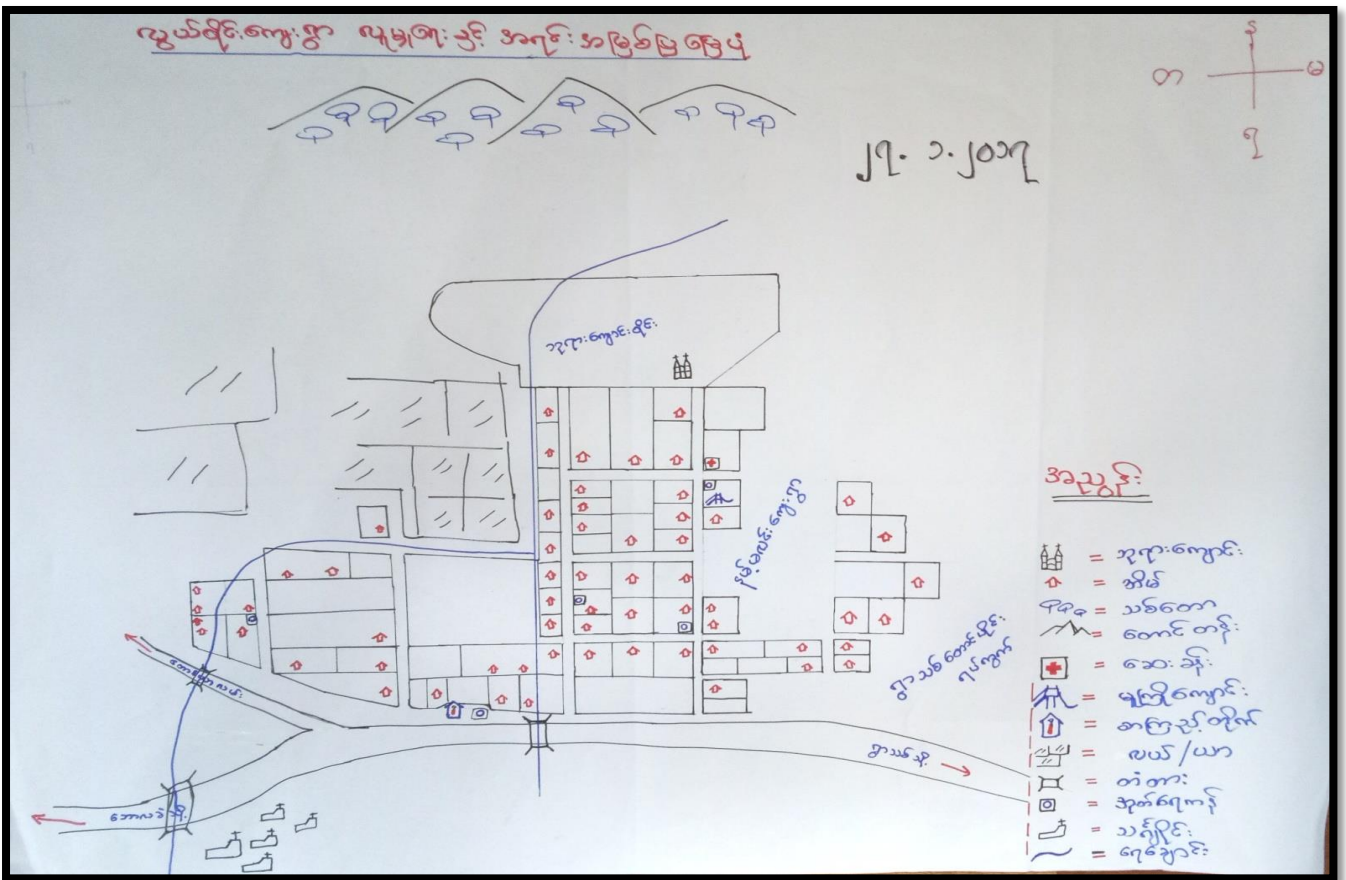 လွယ်စိုင်းကျေးရွာ လူမှုရေးနှင့် အရင်းအမြစ်ပြမြေပုံ
တ
မ
၂၇. ၁. ၂၀၁၇
ဘုရားကျောင်းဝိုင်း
နမ့်မလင်းကျေးရွာ
ရွာသစ်တောင်ပိုင်း
ရပ်ကွက်
ရွာသစ်သို့
အညွှန်း
= ဘုရားကျောင်း
= အိမ်
= သစ်တော
= တောင်တန်း
= ဆေးခန်း
= မူကြိုကျောင်း
= စာကြည့်တိုက်
= လယ်/ယာ
= တံတား
= အုတ်ရေကန်
= သင်္ချိုင်း
= ရေချောင်း